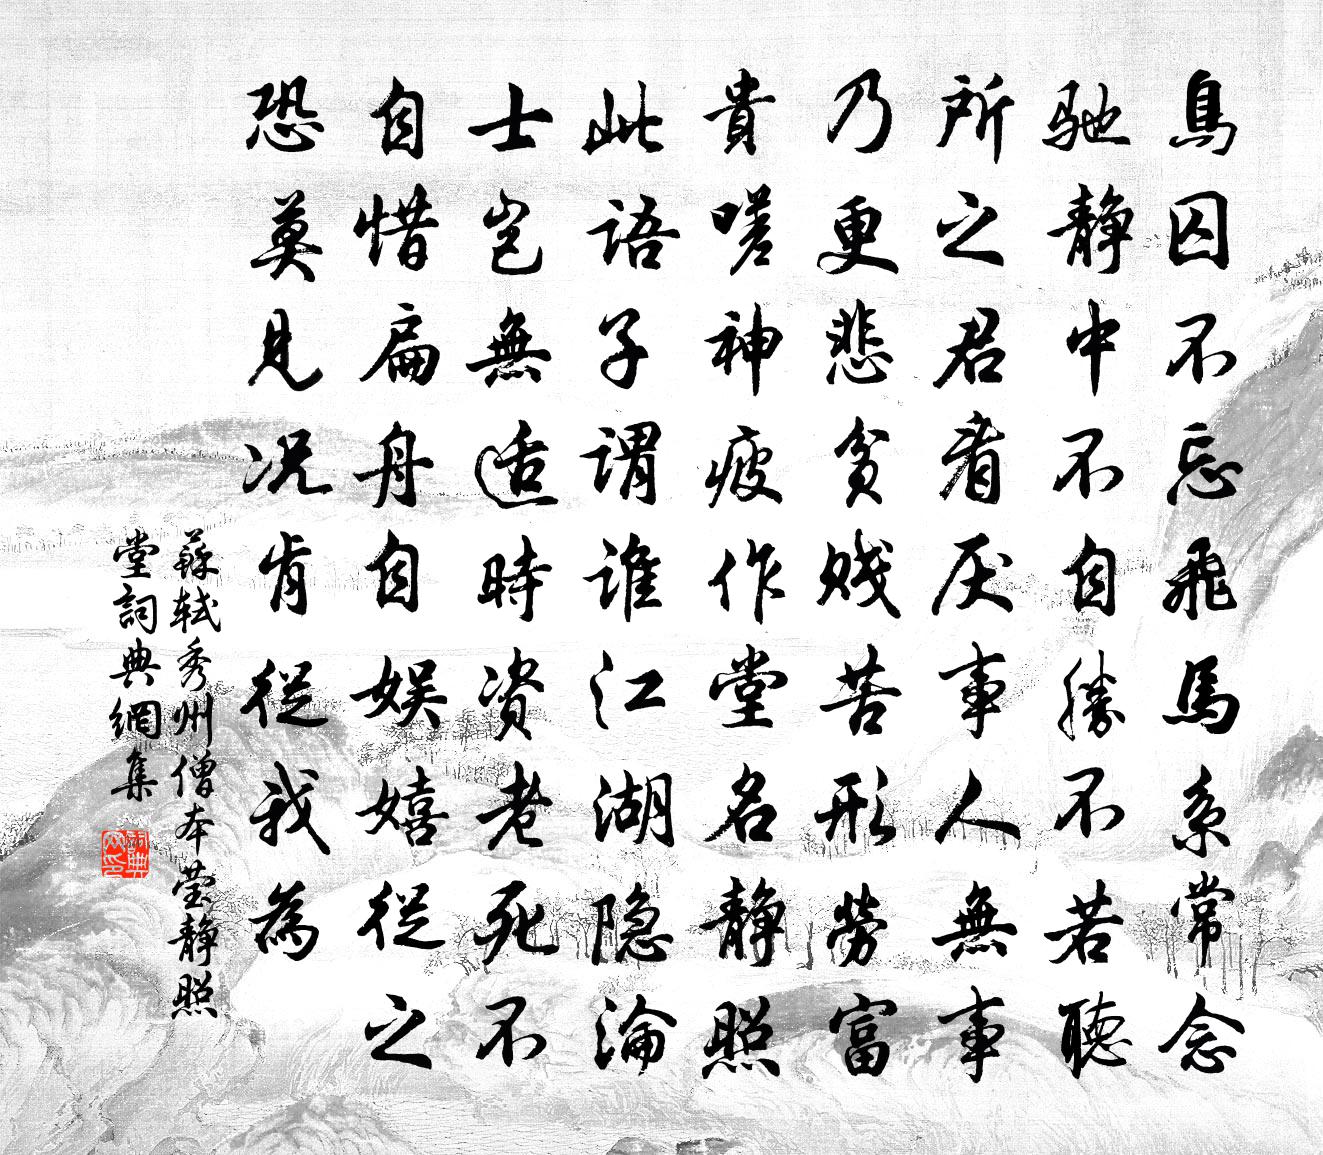 鳥囚不忘飛馬系常念
馳靜中不自勝不若聽
所之君看厌事人無事
乃更悲貧賤苦形勞富
貴嗟神疲作堂名靜照
此語子謂誰江湖隐淪
士岂無适時資老死不
自惜扁舟自娛嬉從之
恐莫見况肯從我為
蘇軾秀州僧本瑩靜照
堂詞典網集